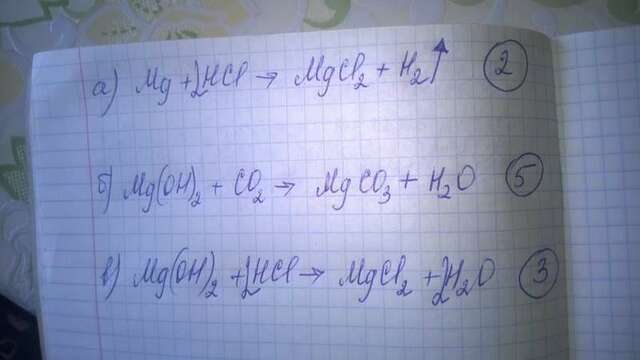 а) Mg + 2HCl → MgCl₂ + H₂↑ ②
б) Mg(OH)₂ + CO₂ → MgCO₃ + H₂O ⑤
в) Mg(OH)₂ + 2HCl → MgCl₂ + 2H₂O ③